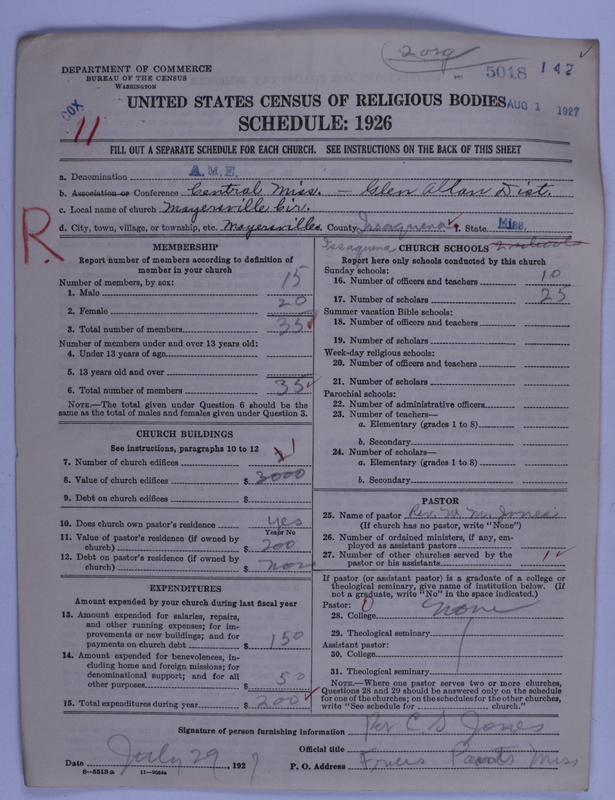 2 org
5018 147
DEPARTMENT OF COMMERCE
BUREAU OF THE CENSUS
WASHINGTON
COX
11
UNITED STATES CENSUS OF RELIGIOUS BODIES
AUG 1 1927
SCHEDULE: 1926
FILL OUT A SEPARATE SCHEDULE FOR EACH CHURCH. SEE INSTRUCTIONS ON THE BACK OF THIS SHEET
a. Denomination A.M.E.
b. Association or Conference Central Miss. — Glen Allan Dist.
c. Local name of church Mayersville Cir.
d. City, town, village, or township, etc. Mayersville County Issaquena State Miss.
R.
MEMBERSHIP
Report number of members according to definition of
member in your church
Number of members, by sex:
1. Male 15
2. Female 20
3. Total number of members 35
Number of members under and over 13 years old:
4. Under 13 years of age
5. 13 years old and over
6. Total number of members 35
NOTE.—The total given under Question 6 should be the
same as the total of males and females given under Question 3.
CHURCH BUILDINGS
See instructions, paragraphs 10 to 12
7. Number of church edifices 1
8. Value of church edifices $ 3000
9. Debt on church edifices $
10. Does church own pastor's residence yes
Yes or No
11. Value of pastor's residence (if owned by
church) $ 200
12. Debt on pastor's residence (if owned by
church) $ none
EXPENDITURES
Amount expended by your church during last fiscal year
13. Amount expended for salaries, repairs,
and other running expenses; for im-
provements or new buildings; and for
payments on church debt $ 150
14. Amount expended for benevolences, in-
cluding home and foreign missions; for
denominational support; and for all
other purposes $ 50
15. Total expenditures during year $ 200
Issaquena CHURCH SCHOOLS 2 schools
Report here only schools conducted by this church
Sunday schools:
16. Number of officers and teachers 10
17. Number of scholars 25
Summer vacation Bible schools:
18. Number of officers and teachers
19. Number of scholars
Week-day religious schools:
20. Number of officers and teachers
21. Number of scholars
Parochial schools:
22. Number of administrative officers
23. Number of teachers—
a. Elementary (grades 1 to 8)
b. Secondary
24. Number of scholars—
a. Elementary (grades 1 to 8)
b. Secondary
PASTOR
25. Name of pastor Rev. W. M. Jones
(If church has no pastor, write "None")
26. Number of ordained ministers, if any, em-
ployed as assistant pastors
27. Number of other churches served by the
pastor or his assistants 1
If pastor (or assistant pastor) is a graduate of a college or
theological seminary, give name of institution below. (If
not a graduate, write "No" in the space indicated.)
Pastor: 0
28. College none
29. Theological seminary
Assistant pastor:
30. College
31. Theological seminary
NOTE.—Where one pastor serves two or more churches,
Questions 28 and 29 should be answered only on the schedule
for one of the churches; on the schedules for the other churches,
write "See schedule for church."
Signature of person furnishing information Rev C S Jones
Official title
Date July 29, 1927 P. O. Address Miss
8—5518a 11—9084a